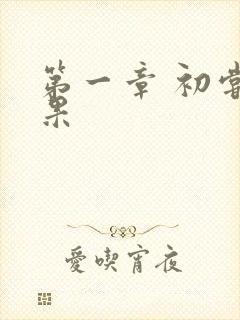 第一章 初嘗
果
愛喫宵夜